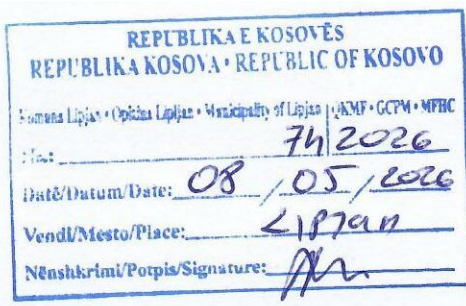 REPUBLIKA E KOSOVËS
REPUBLIKA KOSOVA • REPUBLIC OF KOSOVO
Komuna Lipjan • Opština Lipljan • Municipality of Lipjan | QKMF • GCPM • MFHC
74 2026
Datë/Datum/Date: 08 / 05 / 2026
Vendi/Mesto/Place: Lipjan
Nënshkrimi/Potpis/Signature: